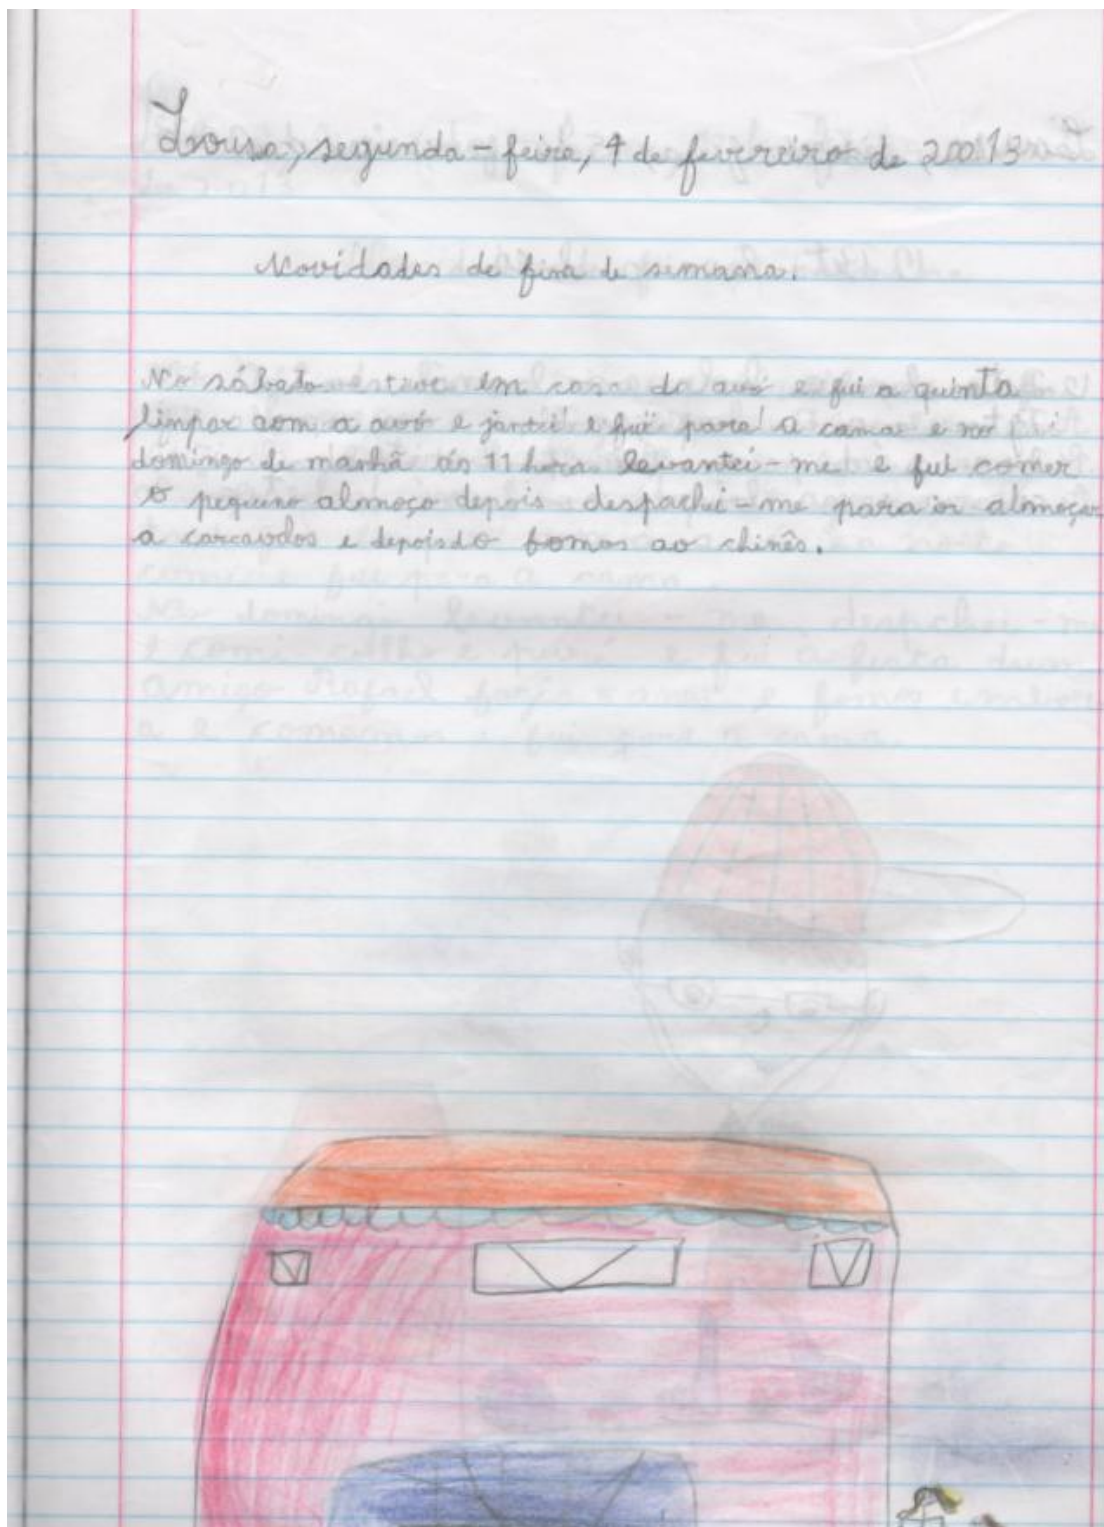 Lousa, segunda-feira, 4 de fevereiro de 20013
Novidades de fim de semana.
No sábato estive em casa da avó e fui a quinta
limpar com a avó e jantei e fui para a cama e no
domingo de manhã ás 11 hora levantei-me e fui comer
o pequeno almoço depois despachei-me para ir almoçar
a carcavelos e depois fomos ao chinês.